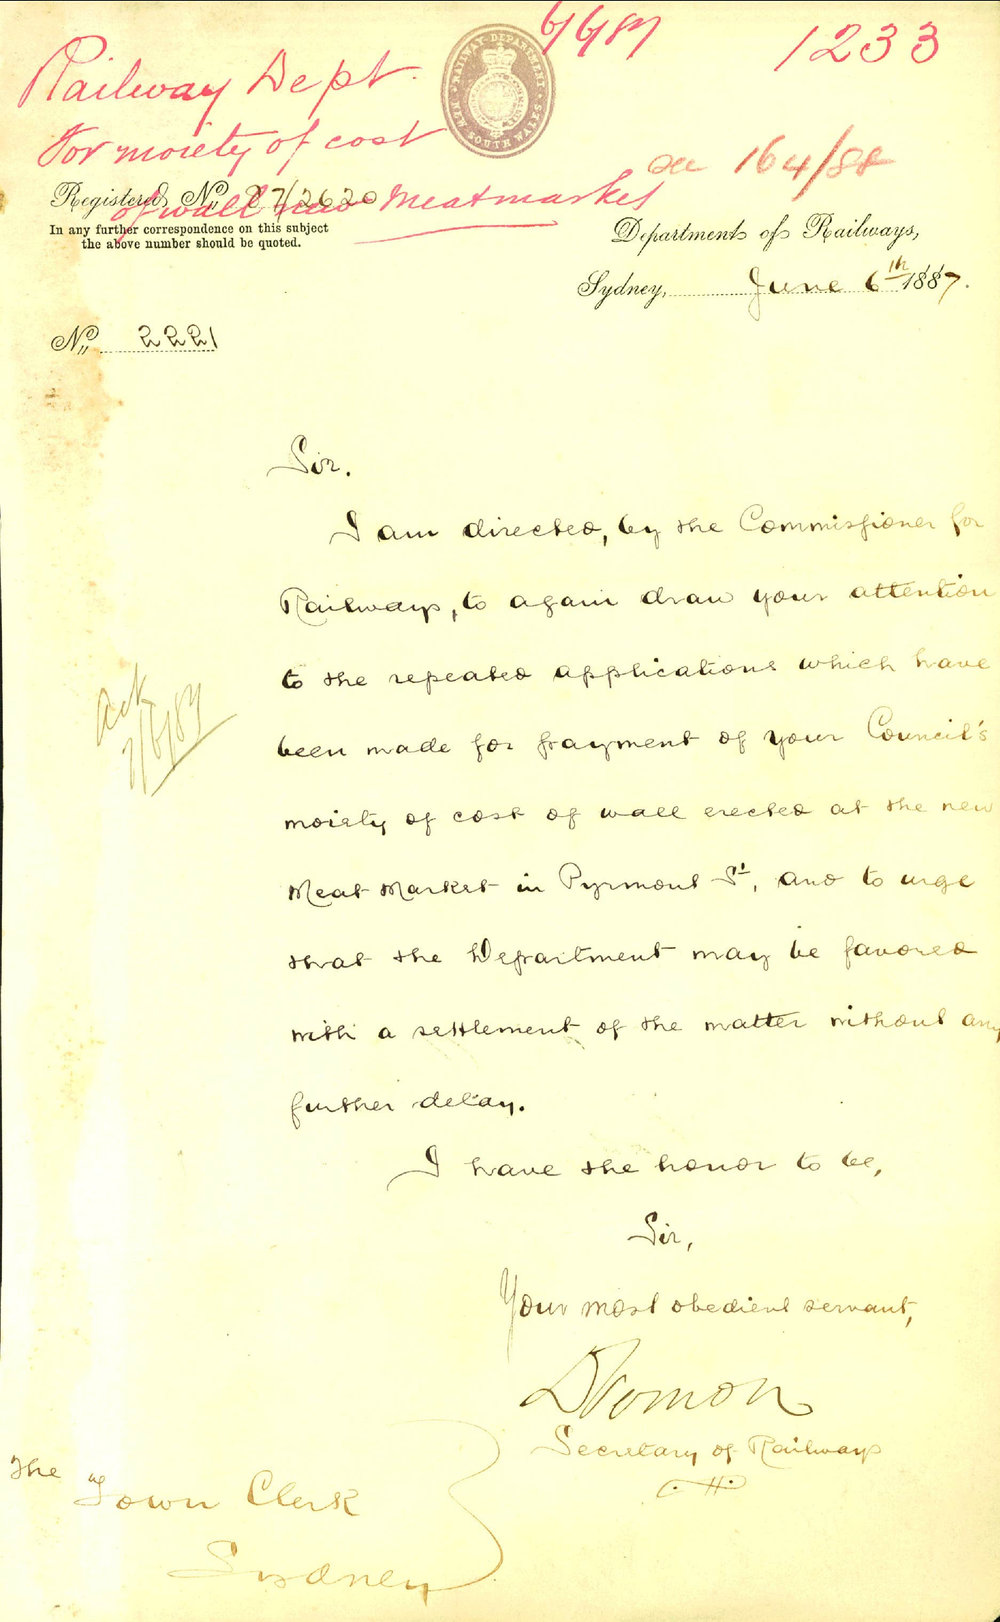 6/6/87
1233
Railway Dept.
For moiety of cost
of wall new Meatmarket
RAILWAY DEPARTMENT
NEW SOUTH WALES
164/88
Registered No. 87/2620
In any further correspondence on this subject
the above number should be quoted.
Department of Railways,
Sydney, June 6th 1887.
No. 2221
Sir.
I am directed, by the Commissioner for
Railways, to again draw your attention
to the repeated applications which have
been made for payment of your Council's
moiety of cost of wall erected at the new
Meat Market in Pyrmont St, and to urge
that the Department may be favored
with a settlement of the matter without any
further delay.
Ack
7/6/87
I have the honor to be,
Sir,
Your most obedient servant,
Secretary of Railways
H
The
Town Clerk
Sydney